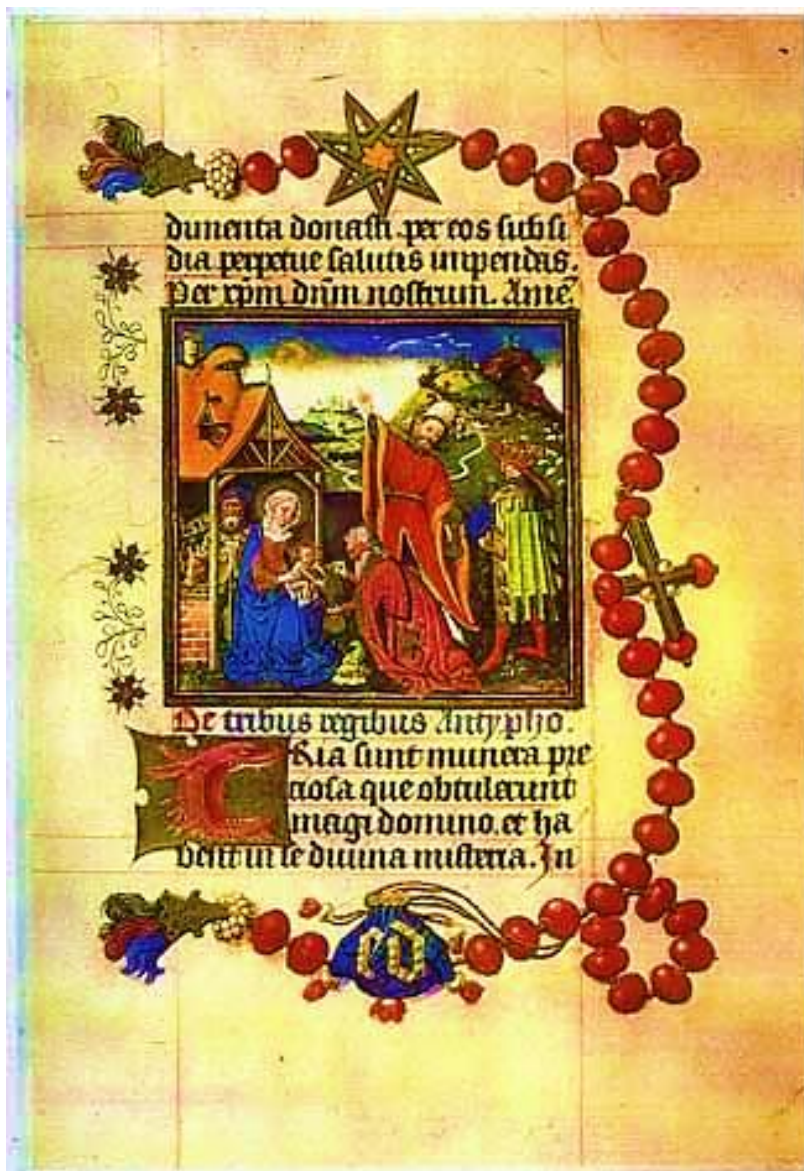 dumenta donasti. per eos subsi
dia perpetue salutis impendas.
Per xp̄m dn̄m nostrum. Amē.
De tribus regibus Antypho.
TRia sunt munera pre
ciosa que obtulerunt
magi domino. et ha
bent in se diuina misteria. In